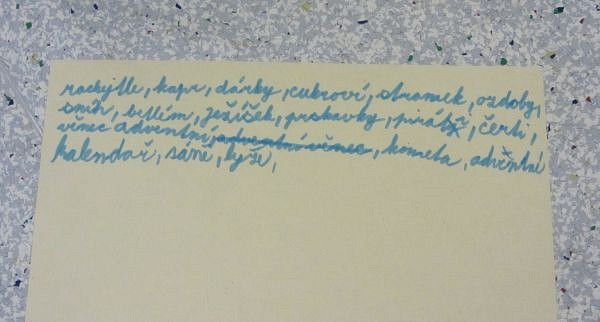 rachejtle, kapr, dárky, cukroví, stromek, ozdoby,
sníh, betlém, ježíšek, prskavky, pirát, čerti,
věnec adventní, adventní věnec, kometa, adventní
kalendař, sáně, lyže,